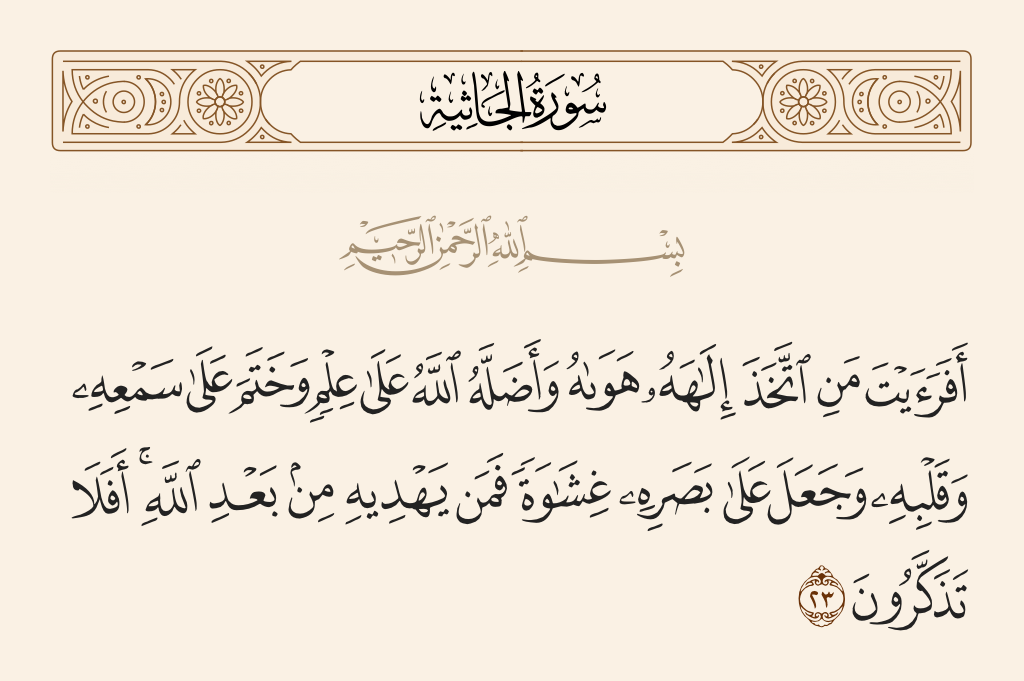 سُورَةُ الجَاثِيَةِ
بِسْمِ ٱللَّهِ ٱلرَّحْمَٰنِ ٱلرَّحِيمِ
أَفَرَءَيْتَ مَنِ ٱتَّخَذَ إِلَٰهَهُۥ هَوَىٰهُ وَأَضَلَّهُ ٱللَّهُ عَلَىٰ عِلْمٍ وَخَتَمَ عَلَىٰ سَمْعِهِۦ
وَقَلْبِهِۦ وَجَعَلَ عَلَىٰ بَصَرِهِۦ غِشَٰوَةً فَمَن يَهْدِيهِ مِنۢ بَعْدِ ٱللَّهِ ۚ أَفَلَا
تَذَكَّرُونَ ٢٣